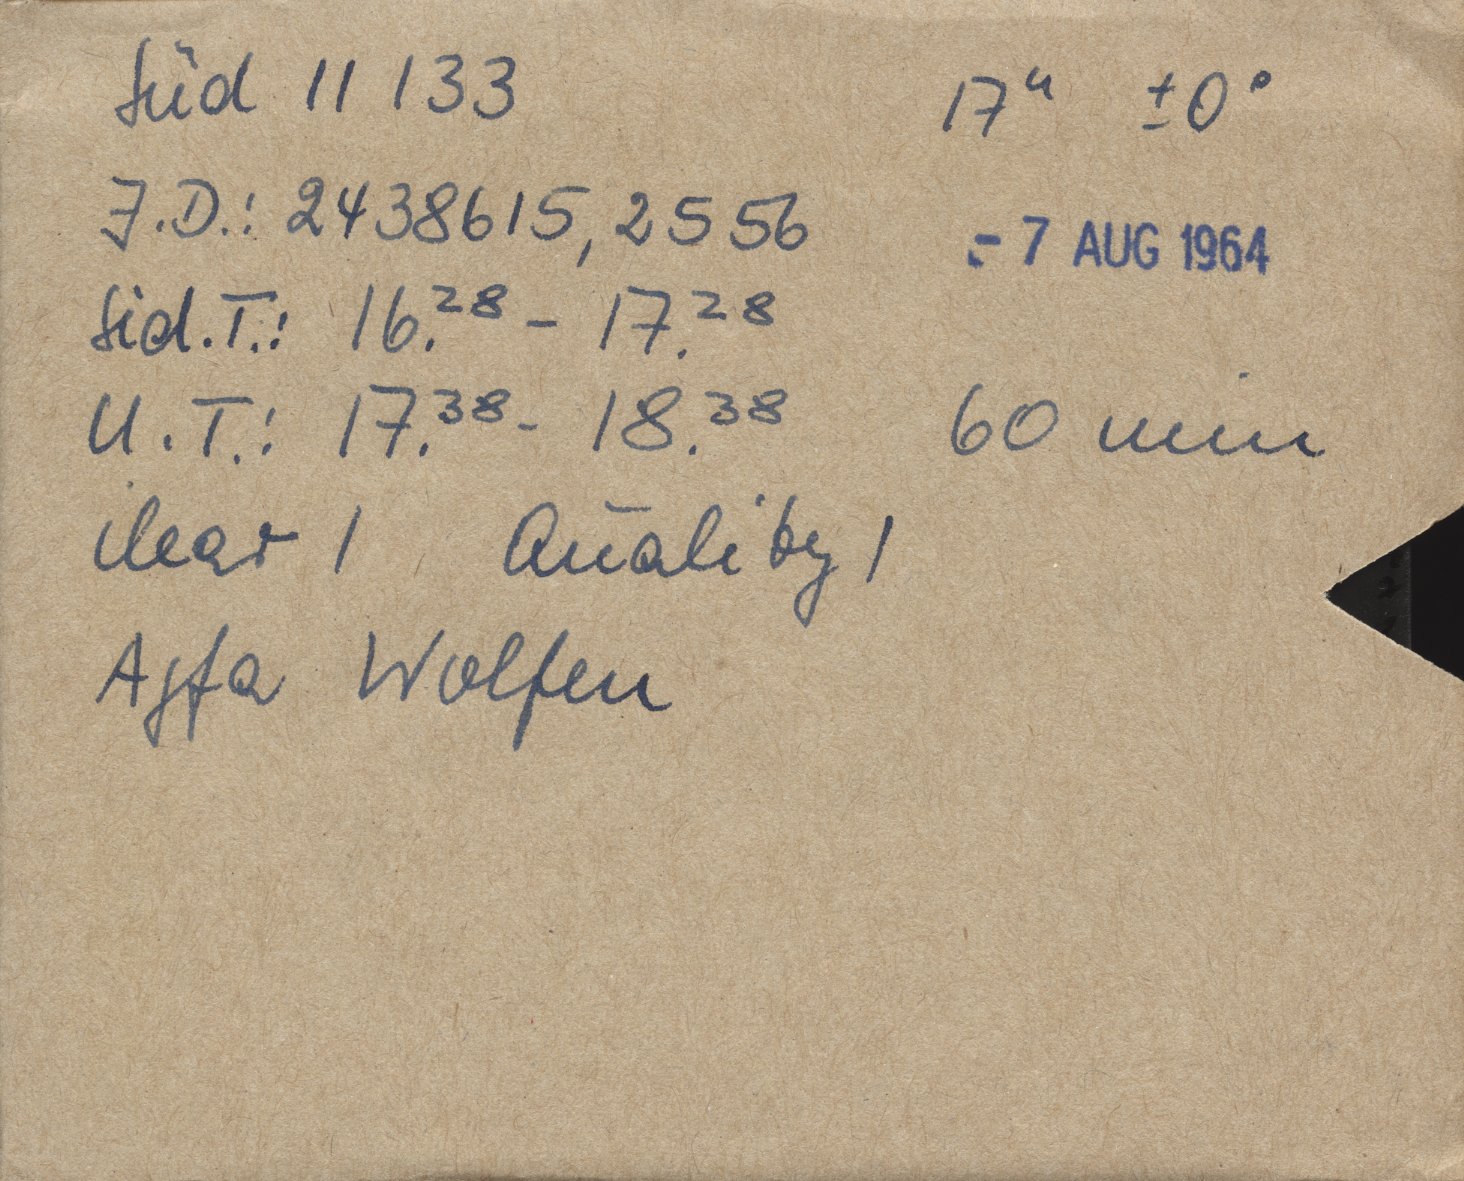 Süd 11 133 17ʰ ±0°
J.D.: 2438615,2556
- 7 AUG 1964
Sid.T.: 16.²⁸ - 17.²⁸
U.T.: 17.³⁸ - 18.³⁸ 60 min
clear 1 Quality 1
Agfa Wolfen